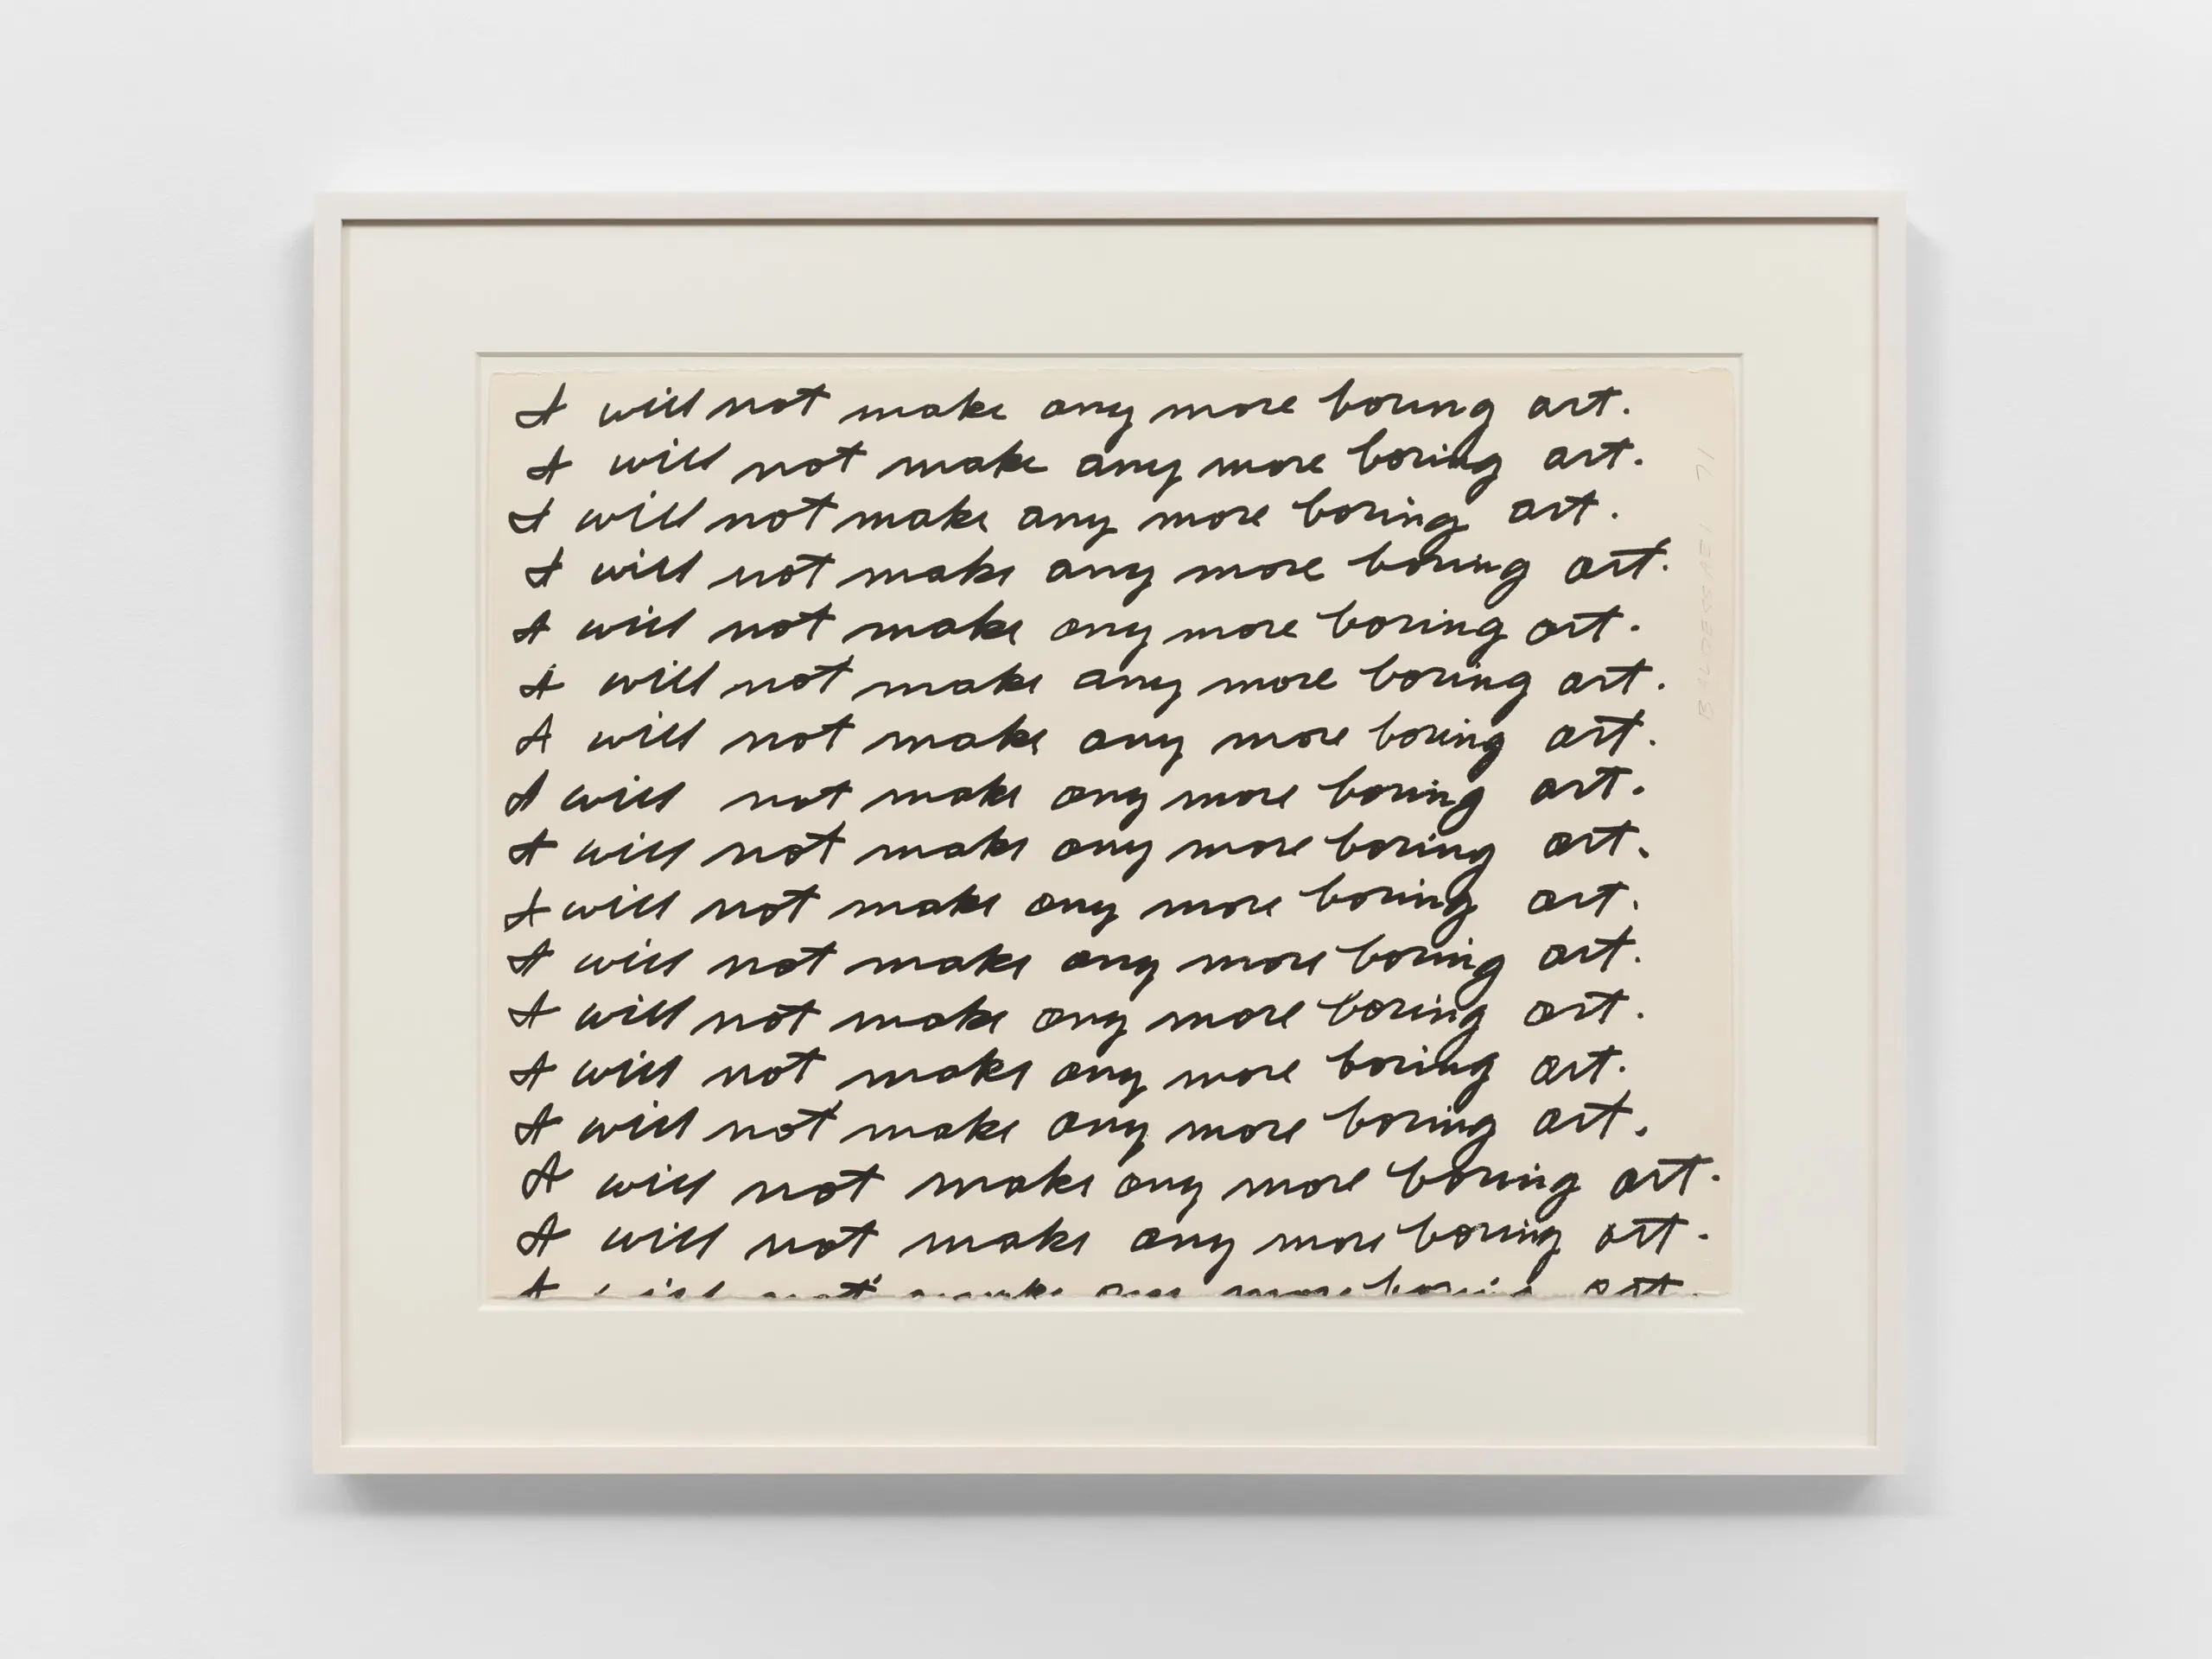 I will not make any more boring art.
I will not make any more boring art.
I will not make any more boring art.
I will not make any more boring art.
I will not make any more boring art.
I will not make any more boring art.
I will not make any more boring art.
I will not make any more boring art.
I will not make any more boring art.
I will not make any more boring art.
I will not make any more boring art.
I will not make any more boring art.
I will not make any more boring art.
I will not make any more boring art.
I will not make any more boring art.
I will not make any more boring art.
I will not make any more boring art.
BALDESSARI 71